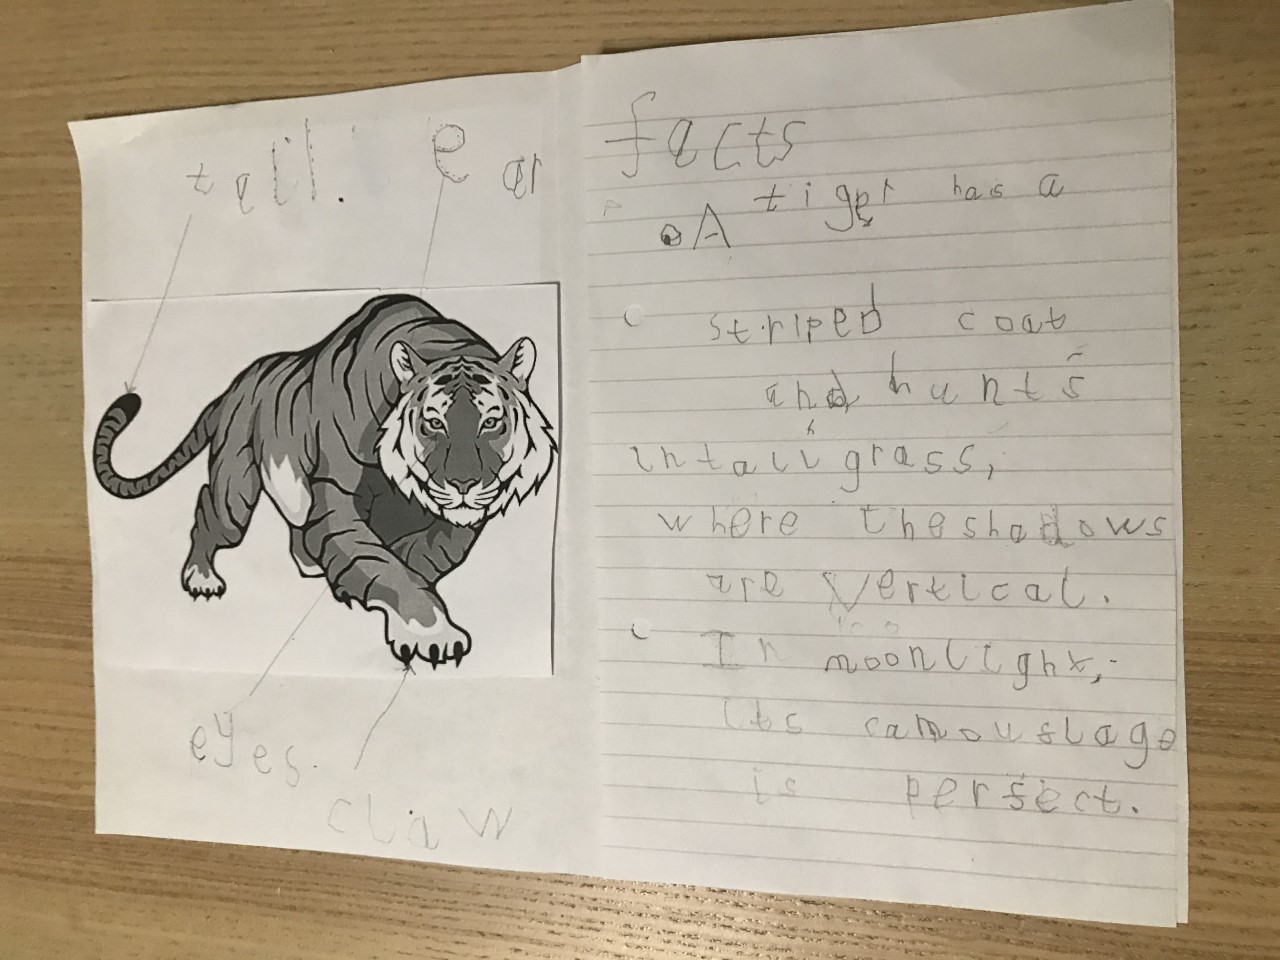 tail.
ear
eyes.
claw
facts
A tiger has a
striped coat
and hunts
in tall grass,
where the shadows
are vertical.
In moonlight,
its camouslage
is persect.